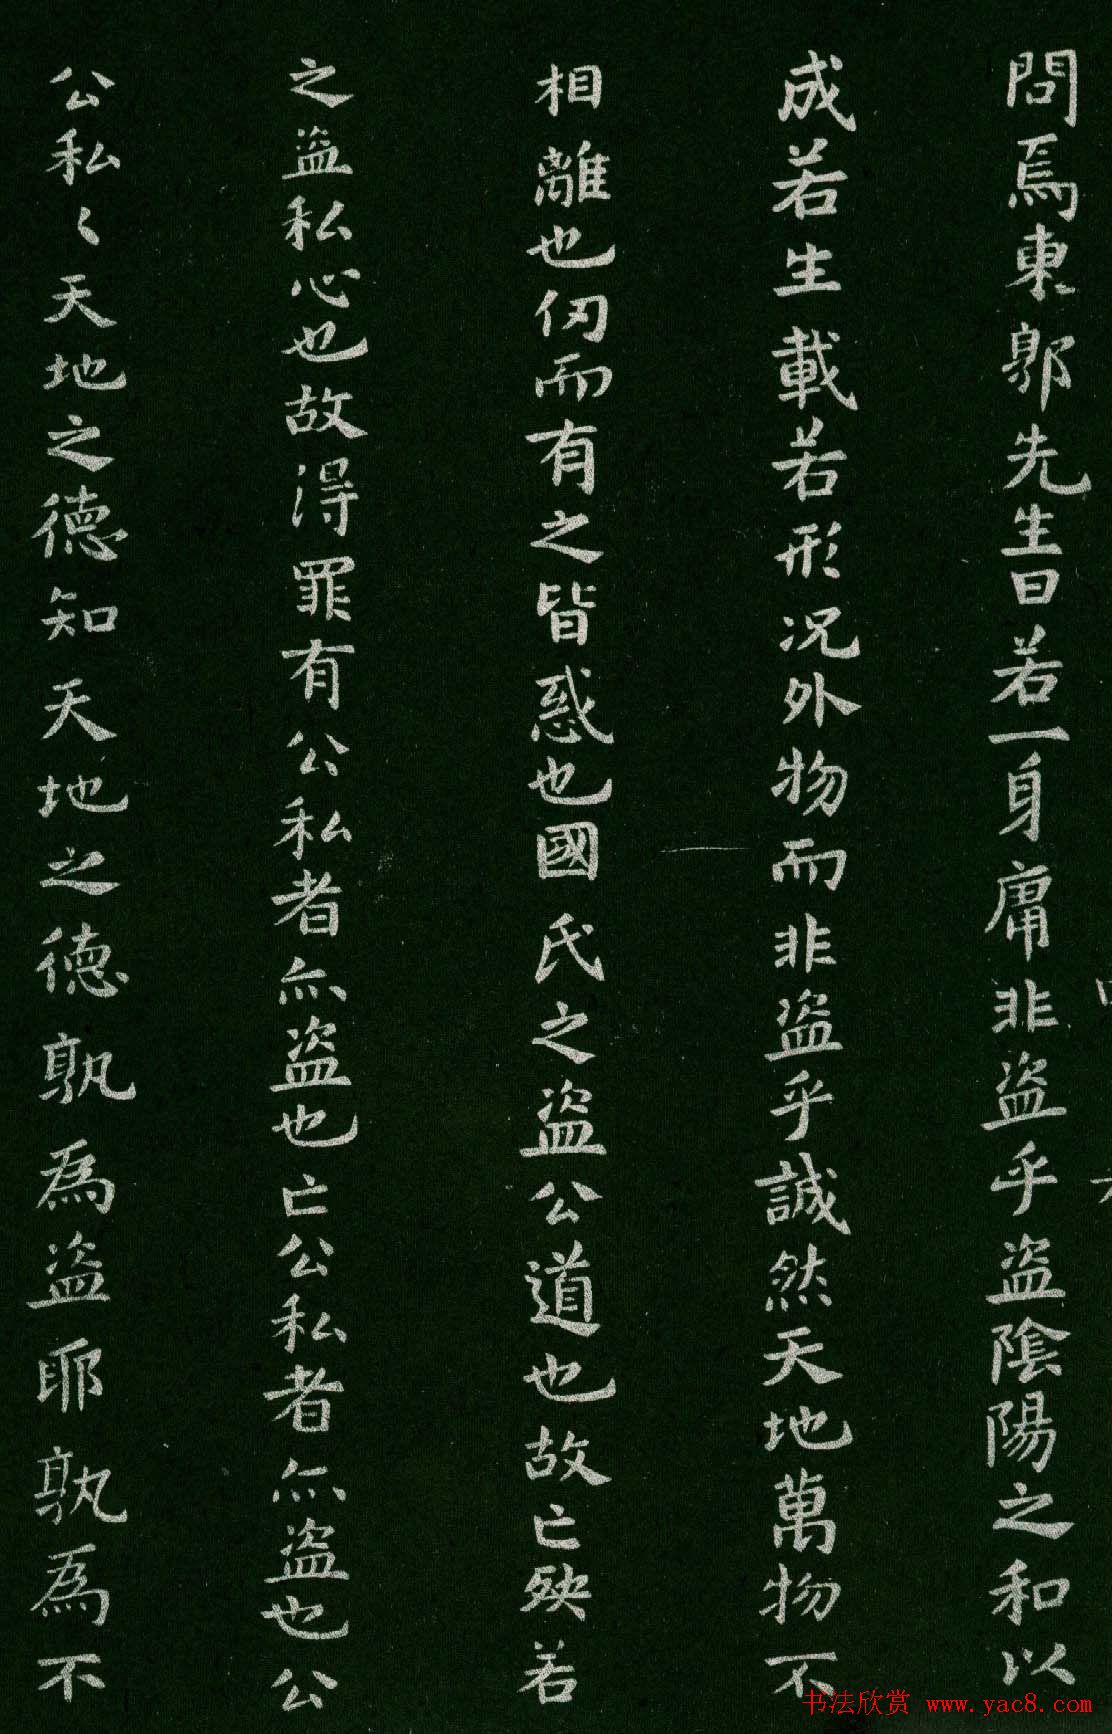 問焉東郭先生曰若一身庸非盗乎盗陰陽之和以
成若生載若形況外物而非盗乎誠然天地萬物不
相離也仞而有之皆惑也國氏之盗公道也故亡殃若
之盗私心也故得罪有公私者亦盗也亡公私者亦盗也公
公私〻天地之德知天地之德孰為盗耶孰為不
书法欣赏 www.yac8.com